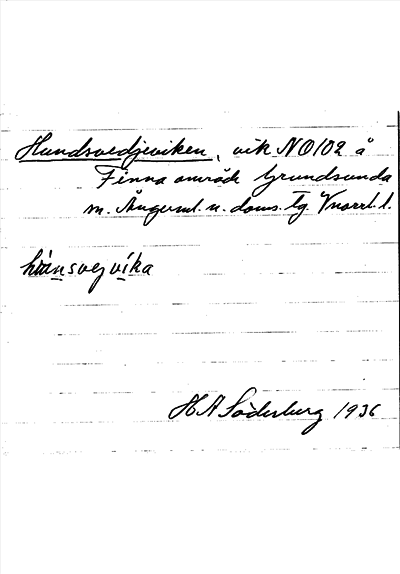 Hundsvedjeviken, vik NO102 å
Finna område Grundsunda
sn. Ångerml. n. doms. tg. Vnorrl. l.
hu̇nsvejvika
H A Söderberg 1936